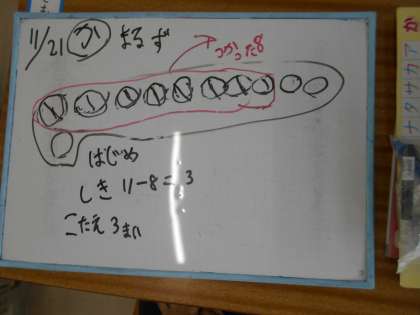 11/21 か まるず
つかった8
はじめ
しき 11-8=3
こたえ 3まい
ナタサカア